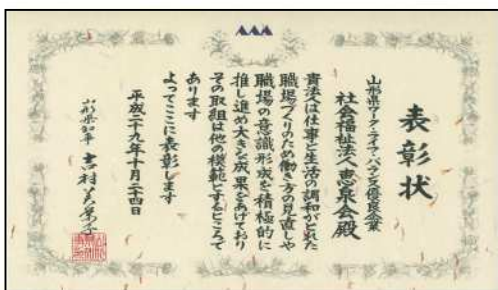 表彰状
山形県ワーク・ライフ・バランス優良企業
社会福祉法人恵泉会殿
貴法人は仕事と生活の調和がとれた
職場づくりのため働き方の見直しや
職場の意識形成を積極的に
推し進め大きな成果をあげており
その取組は他の模範とするところで
あります
よってここに表彰します
平成二十九年十月二十四日
山形県知事 吉村美栄子